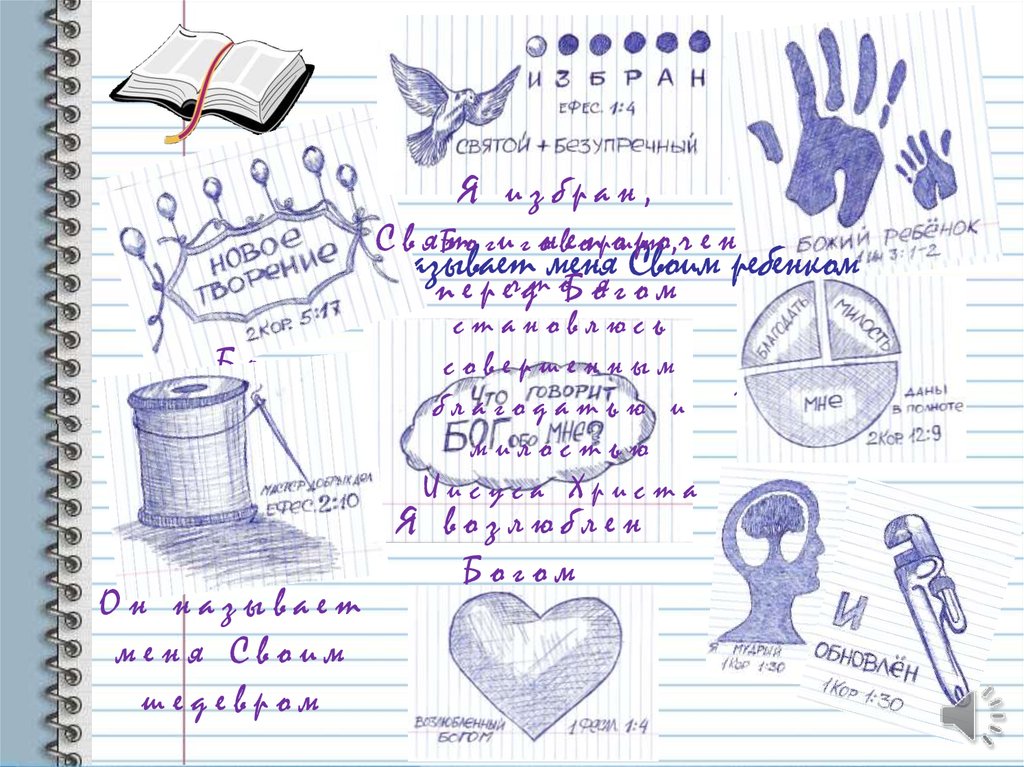 ИЗБРАН
ЕФЕС. 1:4
СВЯТОЙ + БЕЗУПРЕЧНЫЙ
БОЖИЙ РЕБЁНОК
3:1-2
НОВОЕ
ТВОРЕНИЕ
2КОР. 5:17
Я избран,
меня Своим ребенком
перед Богом
становлюсь
совершенным
благодатью и
милостью
Иисуса Христа
Я возлюблен
Богом
ЧТО ГОВОРИТ
БОГ ОБО МНЕ?
БЛАГОДАТЬ
МИЛОСТЬ
МНЕ
ДАНЫ
В ПОЛНОТЕ
2КОР. 12:9
МАСТЕР ДОБРЫХ ДЕЛ
ЕФЕС. 2:10
Он называет
меня Своим
шедевром
ВОЗЛЮБЛЕННЫЙ
БОГОМ
1:4
Я МУДРЫЙ
1КОР 1:30
И
ОБНОВЛЁН
1КОР 1:30